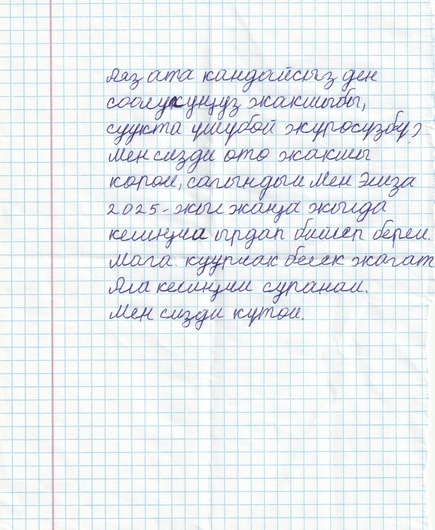 Аяз ата кандайсыз ден
соолукуңуз жакшыбы,
суукта үшүбөй жүрөсүзбү?
Мен сизди ото жакшы
көром, сагындым Мен Элиза
2025-жыл жаңа жылда
келиңиз ырдап бийлеп берем.
Мага куурчак белек жагат
Ала келиңиз суранам.
Мен сизди күтом.